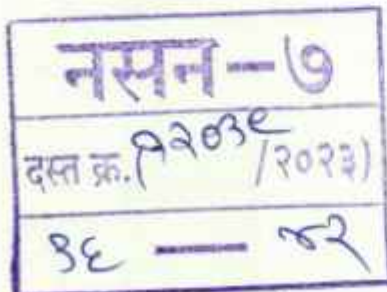 नसन-७
दस्त क्र.(१२०३९/२०२३)
३६ — ४२